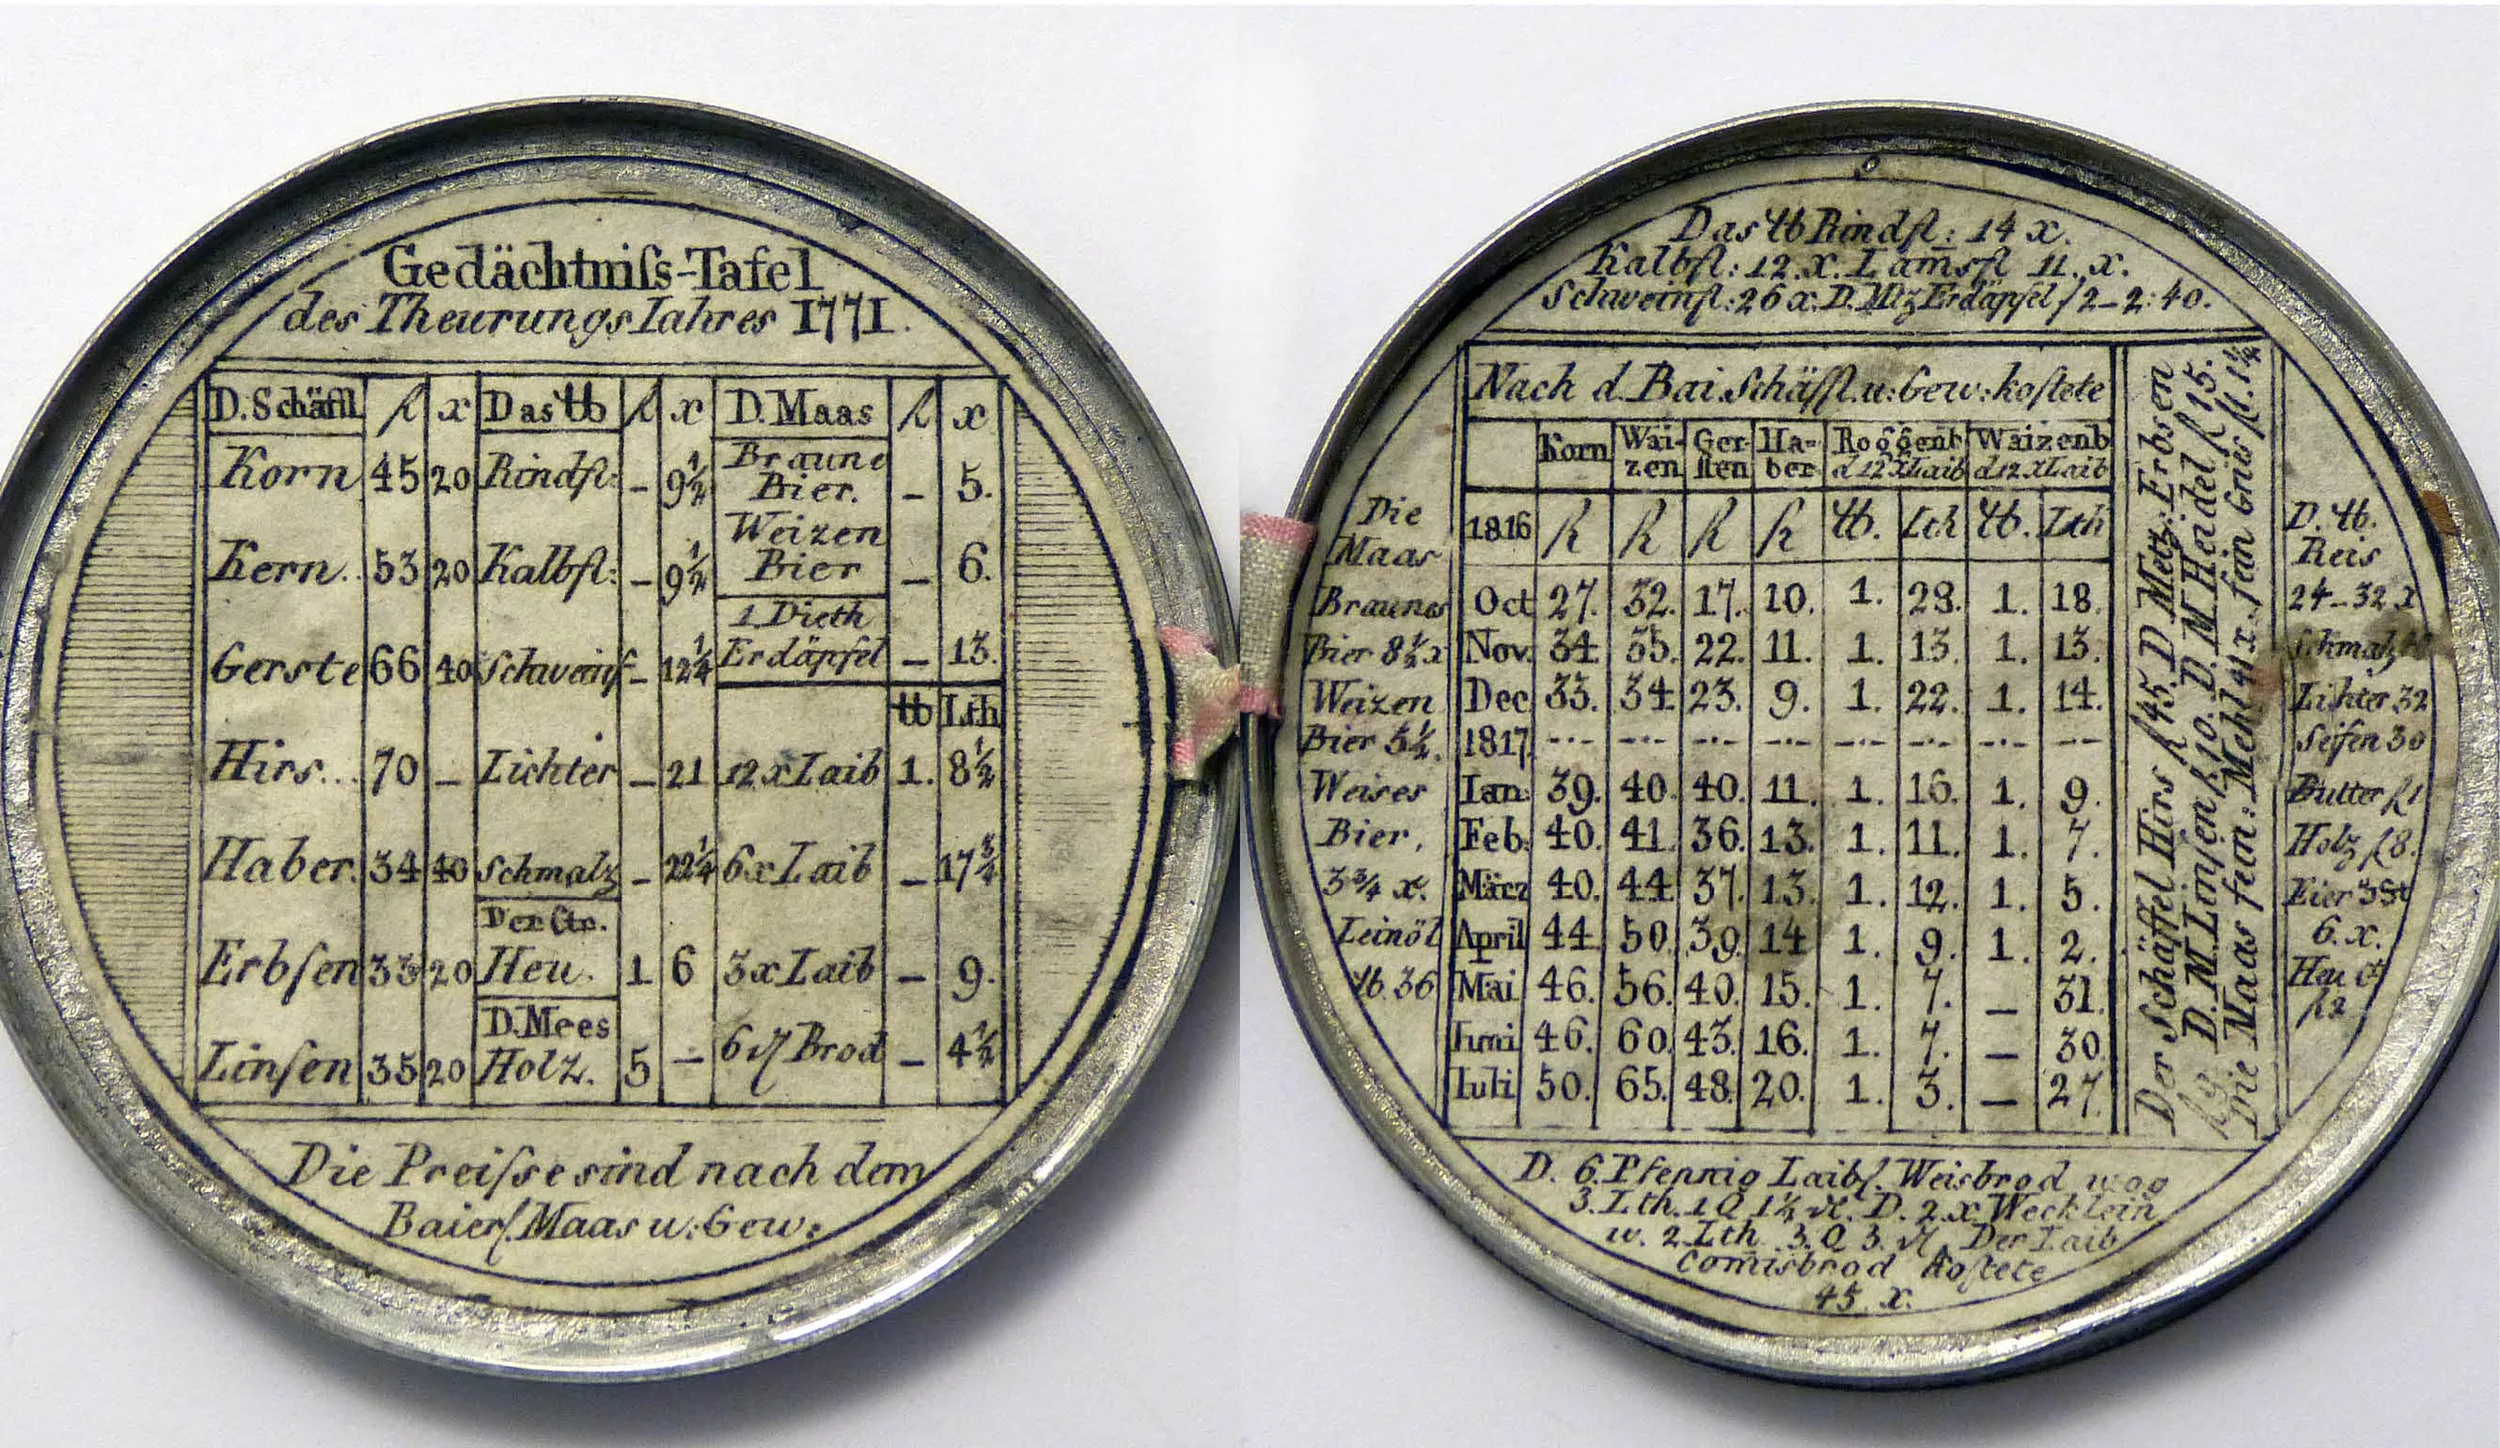 Gedächtniſs-Tafel
des Theurungs Iahres 1771.
D. Schäfil fl x Das ℔ fl x D. Maas fl x
Korn 45 20 Rindfl: – 9½ Braune Bier. – 5.
Kern.. 53 20 Kalbfl: – 9½ Weizen Bier – 6.
Gerste 66 40 Schweinf – 12¼ 1 Dieth Erdäpfel – 13.
℔ Lth
Hirs... 70 – Lichter – 21 12 x Laib 1. 8½
Haber. 34 40 Schmalz – 22¼ 6 x Laib – 17¾
Erbſen 33 20 Der Ctr. Heu. 1 6 3 x Laib – 9.
Linſen 35 20 D. Mees Holz. 5 – 6 ₰ Brod – 4½
Die Preiſse sind nach dem
Baierſ. Maas u: Gew:
Das ℔ Rindfl: 14 x.
Kalbfl: 12. x. Lamsfl 11. x.
Schweinfl: 26 x. D. Mtz Erdäpfel f 2–2: 40.
Nach d. Bai Schäffl. u: Gew: koſtete
Korn Waizen Gerſten Haber Roggenb d 12 x Laib Waizenb d 12 x Laib
1816 fl fl fl fl ℔. Lth ℔. Lth
Oct 27. 32. 17. 10. 1. 28. 1. 18.
Nov. 34. 35. 22. 11. 1. 13. 1. 13.
Dec 33. 34. 23. 9. 1. 22. 1. 14.
1817. -·- -·- -·- -·- -·- -·- -·- -·-
Ian: 39. 40. 40. 11. 1. 16. 1. 9.
Feb: 40. 41. 36. 13. 1. 11. 1. 7.
März 40. 44. 37. 13. 1. 12. 1. 5.
April 44. 50. 39. 14 1. 9. 1. 2.
Mai 46. 56. 40. 15. 1. 7. – 31.
Iuni 46. 60. 43. 16. 1. 7. – 30.
Iuli 50. 65. 48. 20. 1. 3. – 27.
Die
Maas
Braunes
Bier 8½ x
Weizen
Bier 5½.
Weises
Bier,
3¾ x.
Leinöl
℔. 36
Der Schäffel Hirs fl 45. D Metz: Erbsen
fl 9. D. M. Linſen fl 10. D. M Heidel fl 15.
Die Maas fein: Mehl 41 x. fein Gries fl. 1¼
D. ℔.
Reis
24–32 x
Schmalz
Lichter 32
Seifen 30
Butter fl 1
Holz fl 8.
Eier 3 St
6. x.
Heu Ct
fl 2.
D. 6. Pfennig Laibſ. Weisbrod wog
3. Lth. 1 Q 1½ ₰. D. 2. x. Wecklein
w. 2 Lth 3. Q 3. ₰ Der Laib
Com̄isbrod koſtete
45 x.